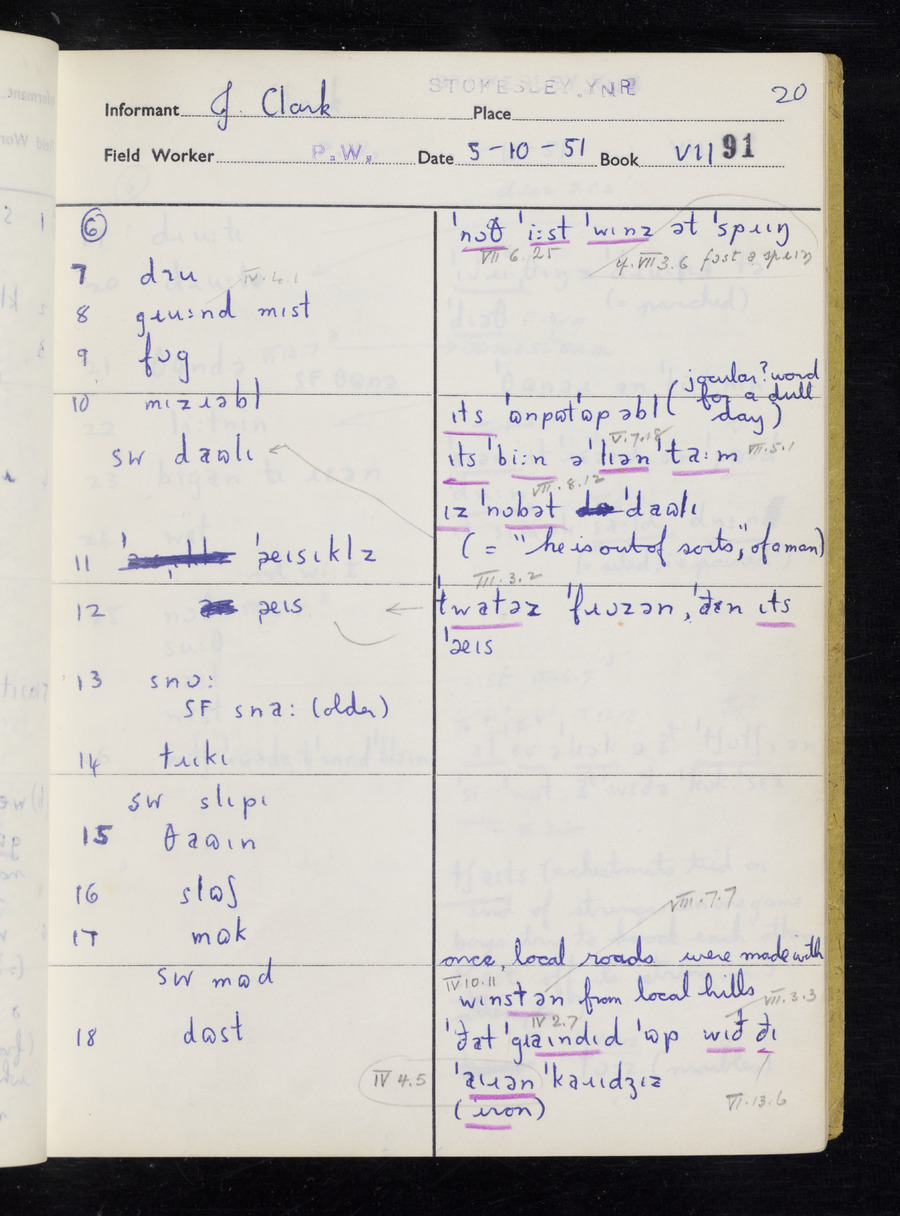 STOKESLEY. YNR
20
Informant J. Clark Place
Field Worker P.W. Date 5-10-51 Book VII 91
⑥
7 dʒu
IV.4.1
8 gɹuːnd mɪst
9 fɒg
10 mɪzɹəbl
SW daʊlɪ
11 ˈæɪsɪklz
12 æɪs
13 snɒː
SF snaː (older)
14 tɹɪkɪ
SW slɪpɪ
15 θaʊɪn
16 slʊʃ
17 mʊk
SW mʊd
18 dʊst
IV 4.5
ˈnɔθ ˈiːst ˈwɪnz ət ˈspɹɪŋ
VII 6.25
4. VII 3.6 fost ə spɹɪŋ
ɪts ˈʊnpʊtˈʊpəbl (jocular? word
for a dull
day)
V.7.18
ɪts ˈbiːn ə ˈlɪən ˈtaːm VII.5.1
VII.8.12
ɪz ˈnɔbət ˈdaʊlɪ
(= "he is out of sorts", of a man)
III.3.2
ˈtwatəz ˈfɹɒzən, ˈðɛn ɪts
ˈæɪs
VIII.7.7
once, local roads were made with
IV 10.11
ˈwɪnstən from local hills
VII.3.3
IV 2.7
ˈðat ˈgɹaɪndɪd ˈʊp wɪð ðɪ
ˈaɪɹən ˈkaɹɪdʒɪz
(iron)
VI.13.6